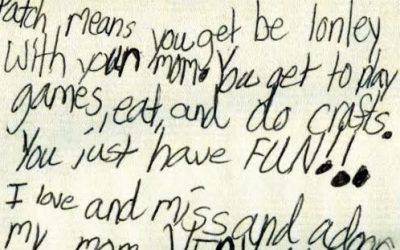 Patch, means you get be lonley
with your mom. You get to play
games, eat, and do crafts.
You just have FUN!!
I love and miss and ador
my mom